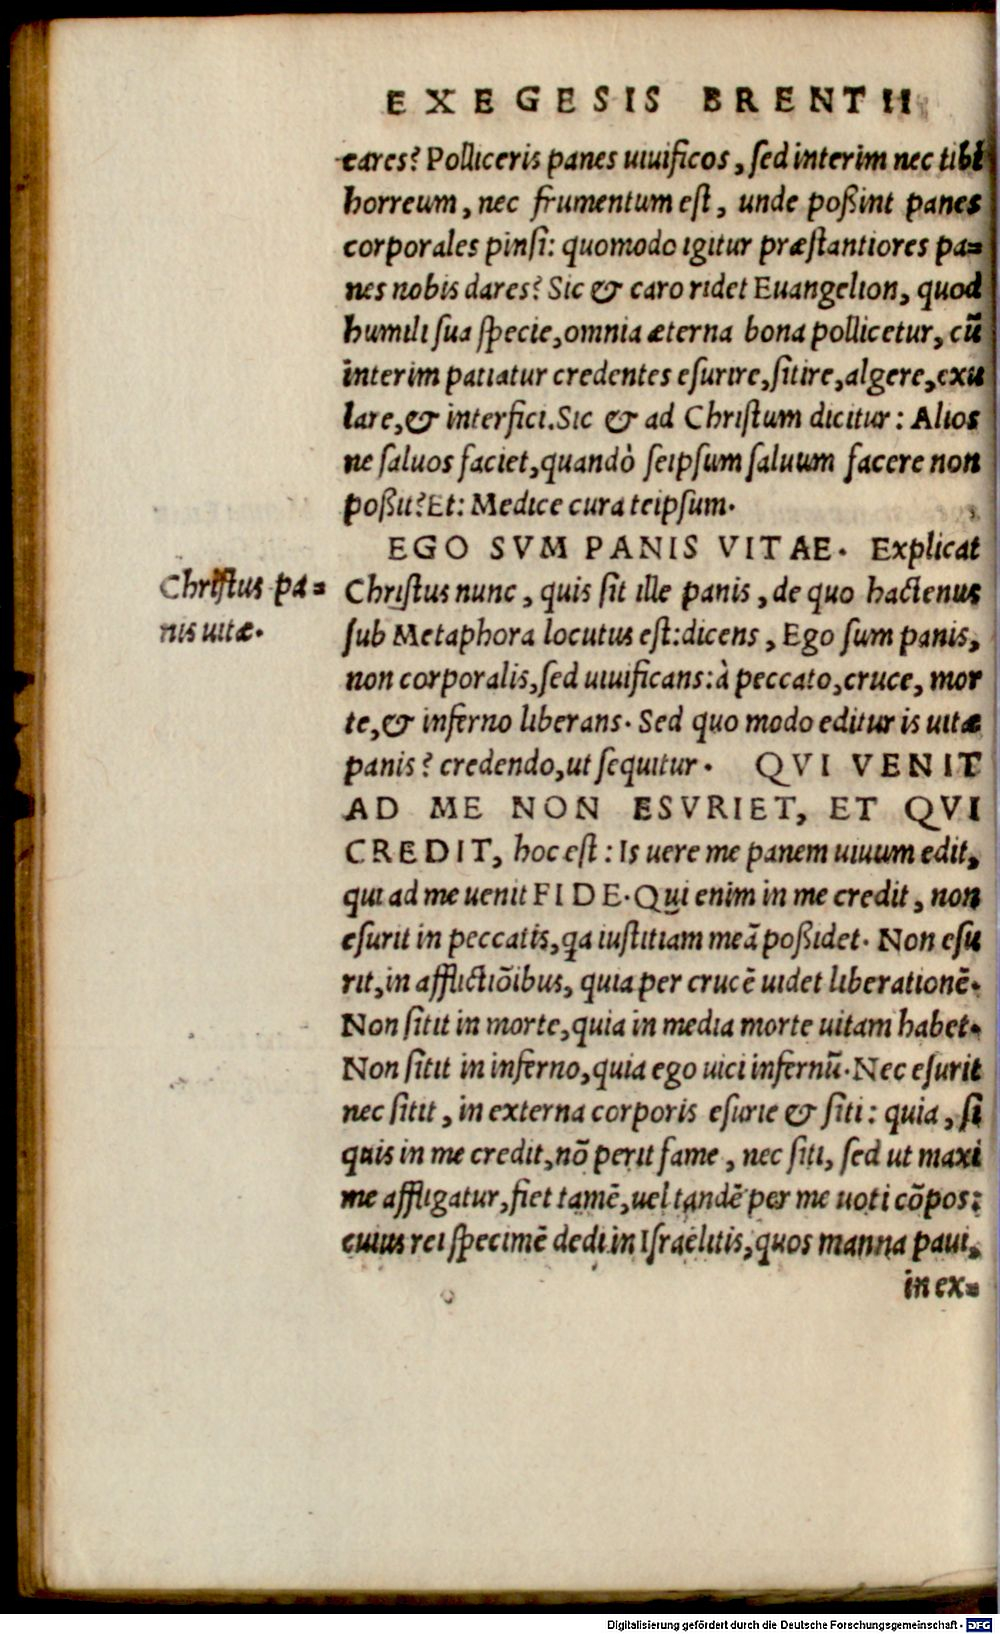 EXEGESIS BRENTII
cares? Polliceris panes uiuificos, sed interim nec tibi
horreum, nec frumentum est, unde poßint panes
corporales pinsi: quomodo igitur præstantiores pa=
nes nobis dares? Sic & caro ridet Euangelion, quod
humili sua specie, omnia æterna bona pollicetur, cū
interim patiatur credentes esurire, sitire, algere, exu
lare, & interfici. Sic & ad Christum dicitur: Alios
ne saluos faciet, quandò seipsum saluum facere non
poßit? Et: Medice cura teipsum.
EGO SVM PANIS VITAE. Explicat
Christus pa=
nis uitæ.
Christus nunc, quis sit ille panis, de quo hactenus
sub Metaphora locutus est: dicens, Ego sum panis,
non corporalis, sed uiuificans: à peccato, cruce, mor
te, & inferno liberans. Sed quo modo editur is uitæ
panis? credendo, ut sequitur. QVI VENIT
AD ME NON ESVRIET, ET QVI
CREDIT, hoc est: Is uere me panem uiuum edit,
qui ad me uenit FIDE. Qui enim in me credit, non
esurit in peccatis, qa iustitiam meā poßidet. Non esu
rit, in afflictiōibus, quia per crucē uidet liberationē.
Non sitit in morte, quia in media morte uitam habet.
Non sitit in inferno, quia ego uici infernū. Nec esurit
nec sitit, in externa corporis esurie & siti: quia, si
quis in me credit, nō perit fame, nec siti, sed ut maxi
me affligatur, fiet tamē, uel tandē per me uoti cōpos:
cuius rei specimē dedi in Israëlitis, quos manna paui,
in ex=
Digitalisierung gefördert durch die Deutsche Forschungsgemeinschaft - DFG